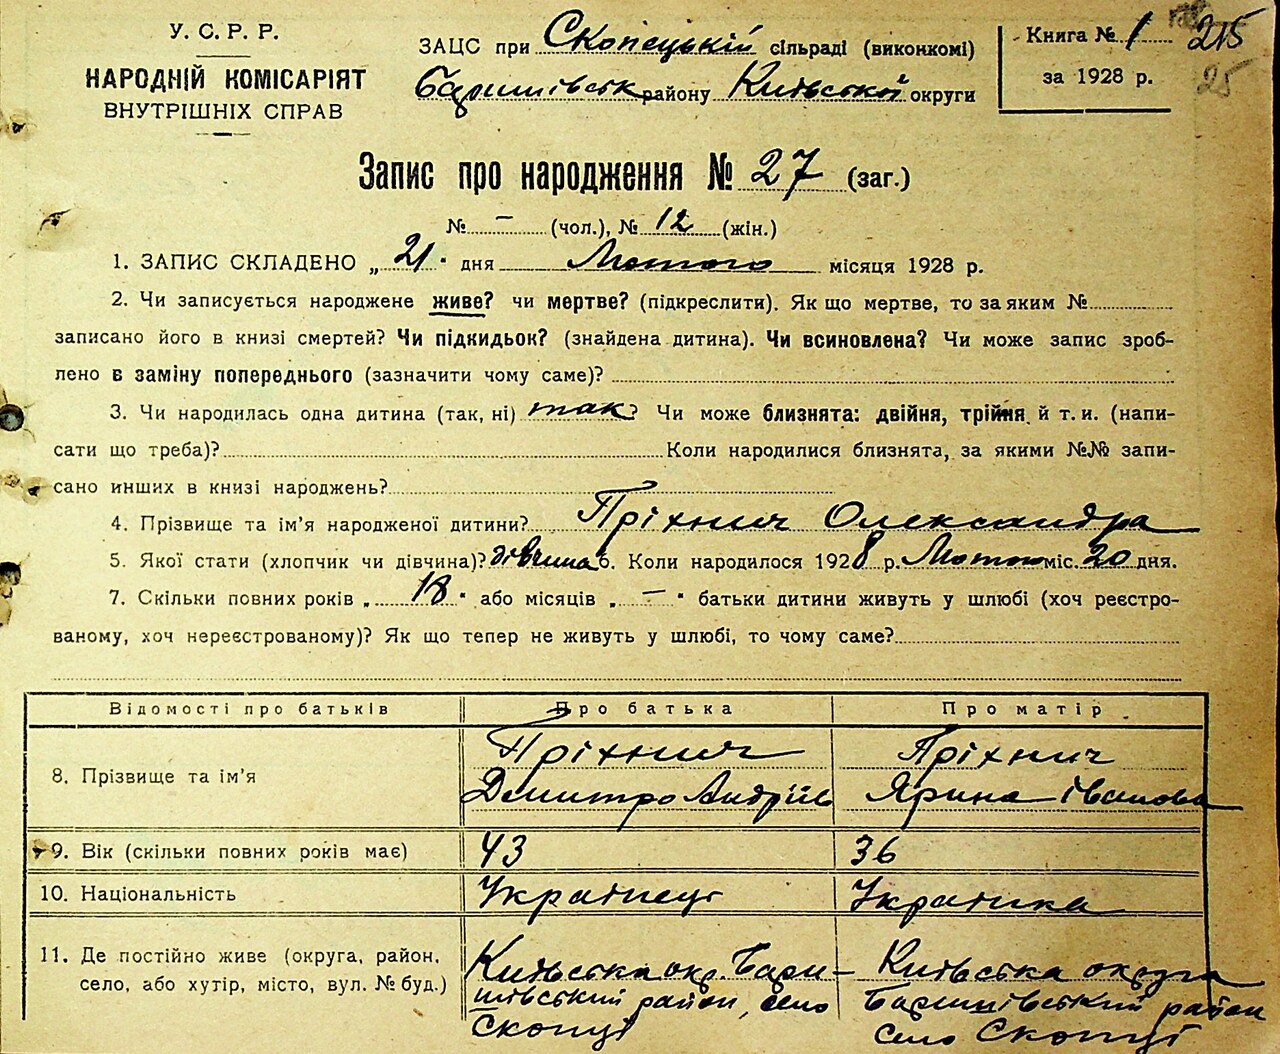 У. С. Р. Р.
НАРОДНІЙ КОМІСАРІЯТ
ВНУТРІШНІХ СПРАВ
ЗАЦС при Скопецькій сільраді (виконкомі)
Баришівськ району Київської округи
Книга № 1
за 1928 р.
215
25
Запис про народження № 27 (заг.)
№ — (чол.), № 12 (жін.)
1. ЗАПИС СКЛАДЕНО „ 21 " дня Лютого місяця 1928 р.
2. Чи записується народжене живе? чи мертве? (підкреслити). Як що мертве, то за яким №
записано його в книзі смертей? Чи підкидьок? (знайдена дитина). Чи всиновлена? Чи може запис зроб-
лено в заміну попереднього (зазначити чому саме)?
3. Чи народилась одна дитина (так, ні) так? Чи може близнята: двійня, трійня й т. и. (напи-
сати що треба)? Коли народилися близнята, за якими №№ запи-
сано инших в книзі народжень?
4. Прізвище та ім'я народженої дитини? Пріхнич Олександра
5. Якої стати (хлопчик чи дівчина)? дівчина 6. Коли народилося 1928 р. Лютого міс. 20 дня.
7. Скільки повних років „ 18 " або місяців „ — " батьки дитини живуть у шлюбі (хоч реєстро-
ваному, хоч нереєстрованому)? Як що тепер не живуть у шлюбі, то чому саме?
Відомості про батьків Про батька Про матір
8. Прізвище та ім'я
Пріхнич
Дмитро Андріїв
Пріхнич
Ярина Іванова
9. Вік (скільки повних років має) 43 36
10. Національність Українець Українка
11. Де постійно живе (округа, район,
село, або хутір, місто, вул. № буд.)
Київська окр. Бари-
шівський район, село
Скопці
Київська округа
Баришівський район
село Скопці